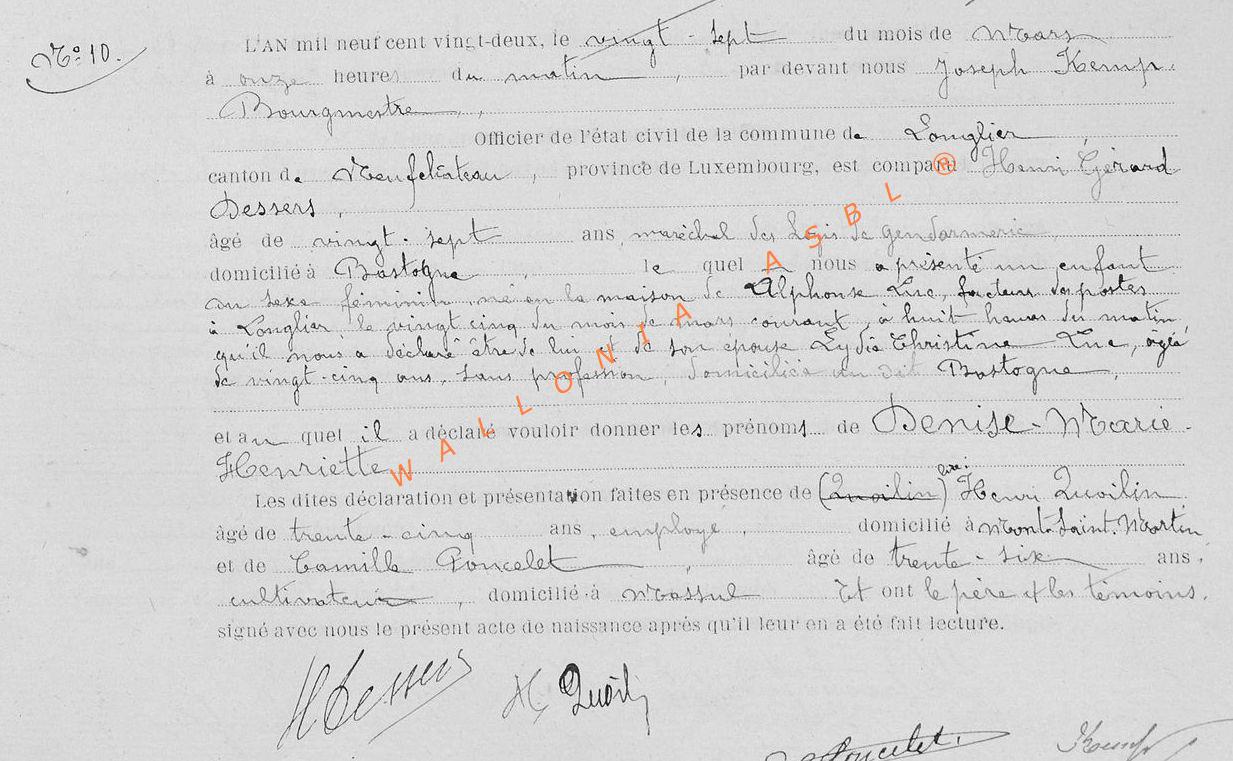 N° 10.
L'AN mil neuf cent vingt-deux, le vingt-sept du mois de Mars
à onze heures du matin, par devant nous Joseph Kemp,
Bourgmestre,
Officier de l'état civil de la commune de Longlier,
canton de Neufchâteau, province de Luxembourg, est comparu Henri Gérard
Dessers,
âgé de vingt-sept ans, maréchal des Logis de gendarmerie,
domicilié à Bastogne, le quel nous a présenté un enfant
du sexe féminin, né en la maison de Alphonse Luc, facteur des postes
à Longlier, le vingt cinq du mois de mars courant, à huit heures du matin
qu'il nous a déclaré être de lui et de son épouse Lydie Christine Luc, âgée
de vingt-cinq ans, sans profession, domiciliée au dit Bastogne,
et au quel il a déclaré vouloir donner les prénoms de Denise-Marie-
Henriette
Les dites déclaration et présentation faites en présence de (Quoilin) lire: Henri Quoilin
âgé de trente-cinq ans, employé, domicilié à Mont-Saint-Martin
et de Camille Poncelet, âgé de trente-six ans,
cultivateur, domicilié à Massul Et ont le père & les témoins,
signé avec nous le présent acte de naissance après qu'il leur en a été fait lecture.
HDessers
H. Quoilin
Poncelet.
Kemp
WALLONIA ASBL ®